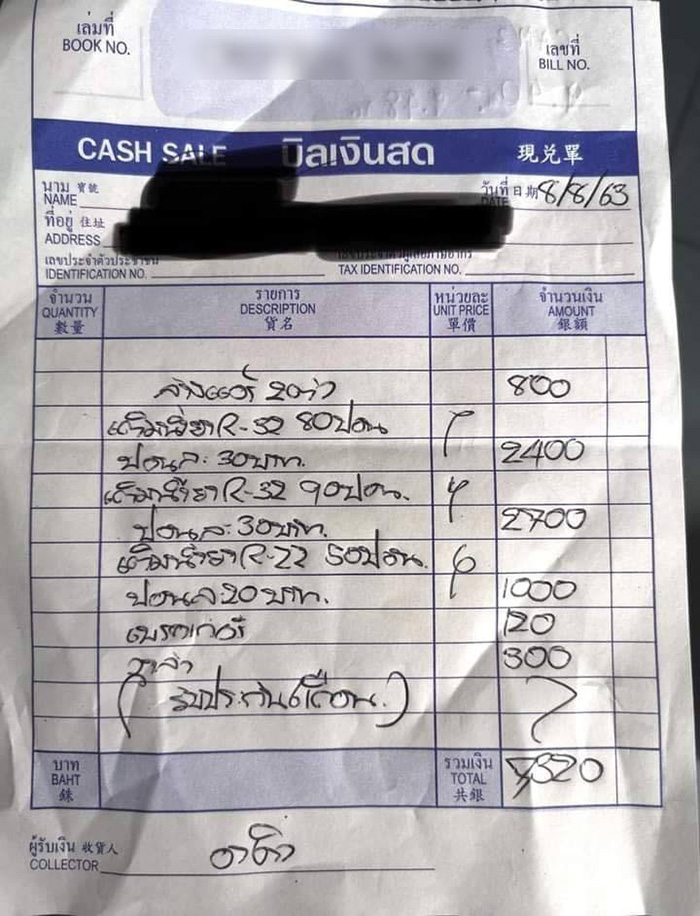 เล่มที่
BOOK NO.
เลขที่
BILL NO.
CASH SALE บิลเงินสด 現兑單
นาม 寶號
NAME
วันที่ 日期 8/8/63
DATE
ที่อยู่ 住址
ADDRESS
เลขประจำตัวประชาชน
IDENTIFICATION NO.
เลขประจำตัวผู้เสียภาษีอากร
TAX IDENTIFICATION NO.
จำนวน รายการ หน่วยละ จำนวนเงิน
QUANTITY DESCRIPTION UNIT PRICE AMOUNT
數量 貨名 單價 銀額
ล้างแอร์ 2ตัว 800
เติมน้ำยา R-32 80ปอน
ปอนละ 30บาท. 2400
เติมน้ำยา R-32 90ปอน.
ปอนละ 30บาท. 2700
เติมน้ำยา R-22 50ปอน.
ปอนละ 20บาท. 1000
เบรกเกอร์ 120
300
(รับประกัน6เดือน.)
บาท รวมเงิน 7,320
BAHT TOTAL
銖 共銀
ผู้รับเงิน 收貨人
COLLECTOR